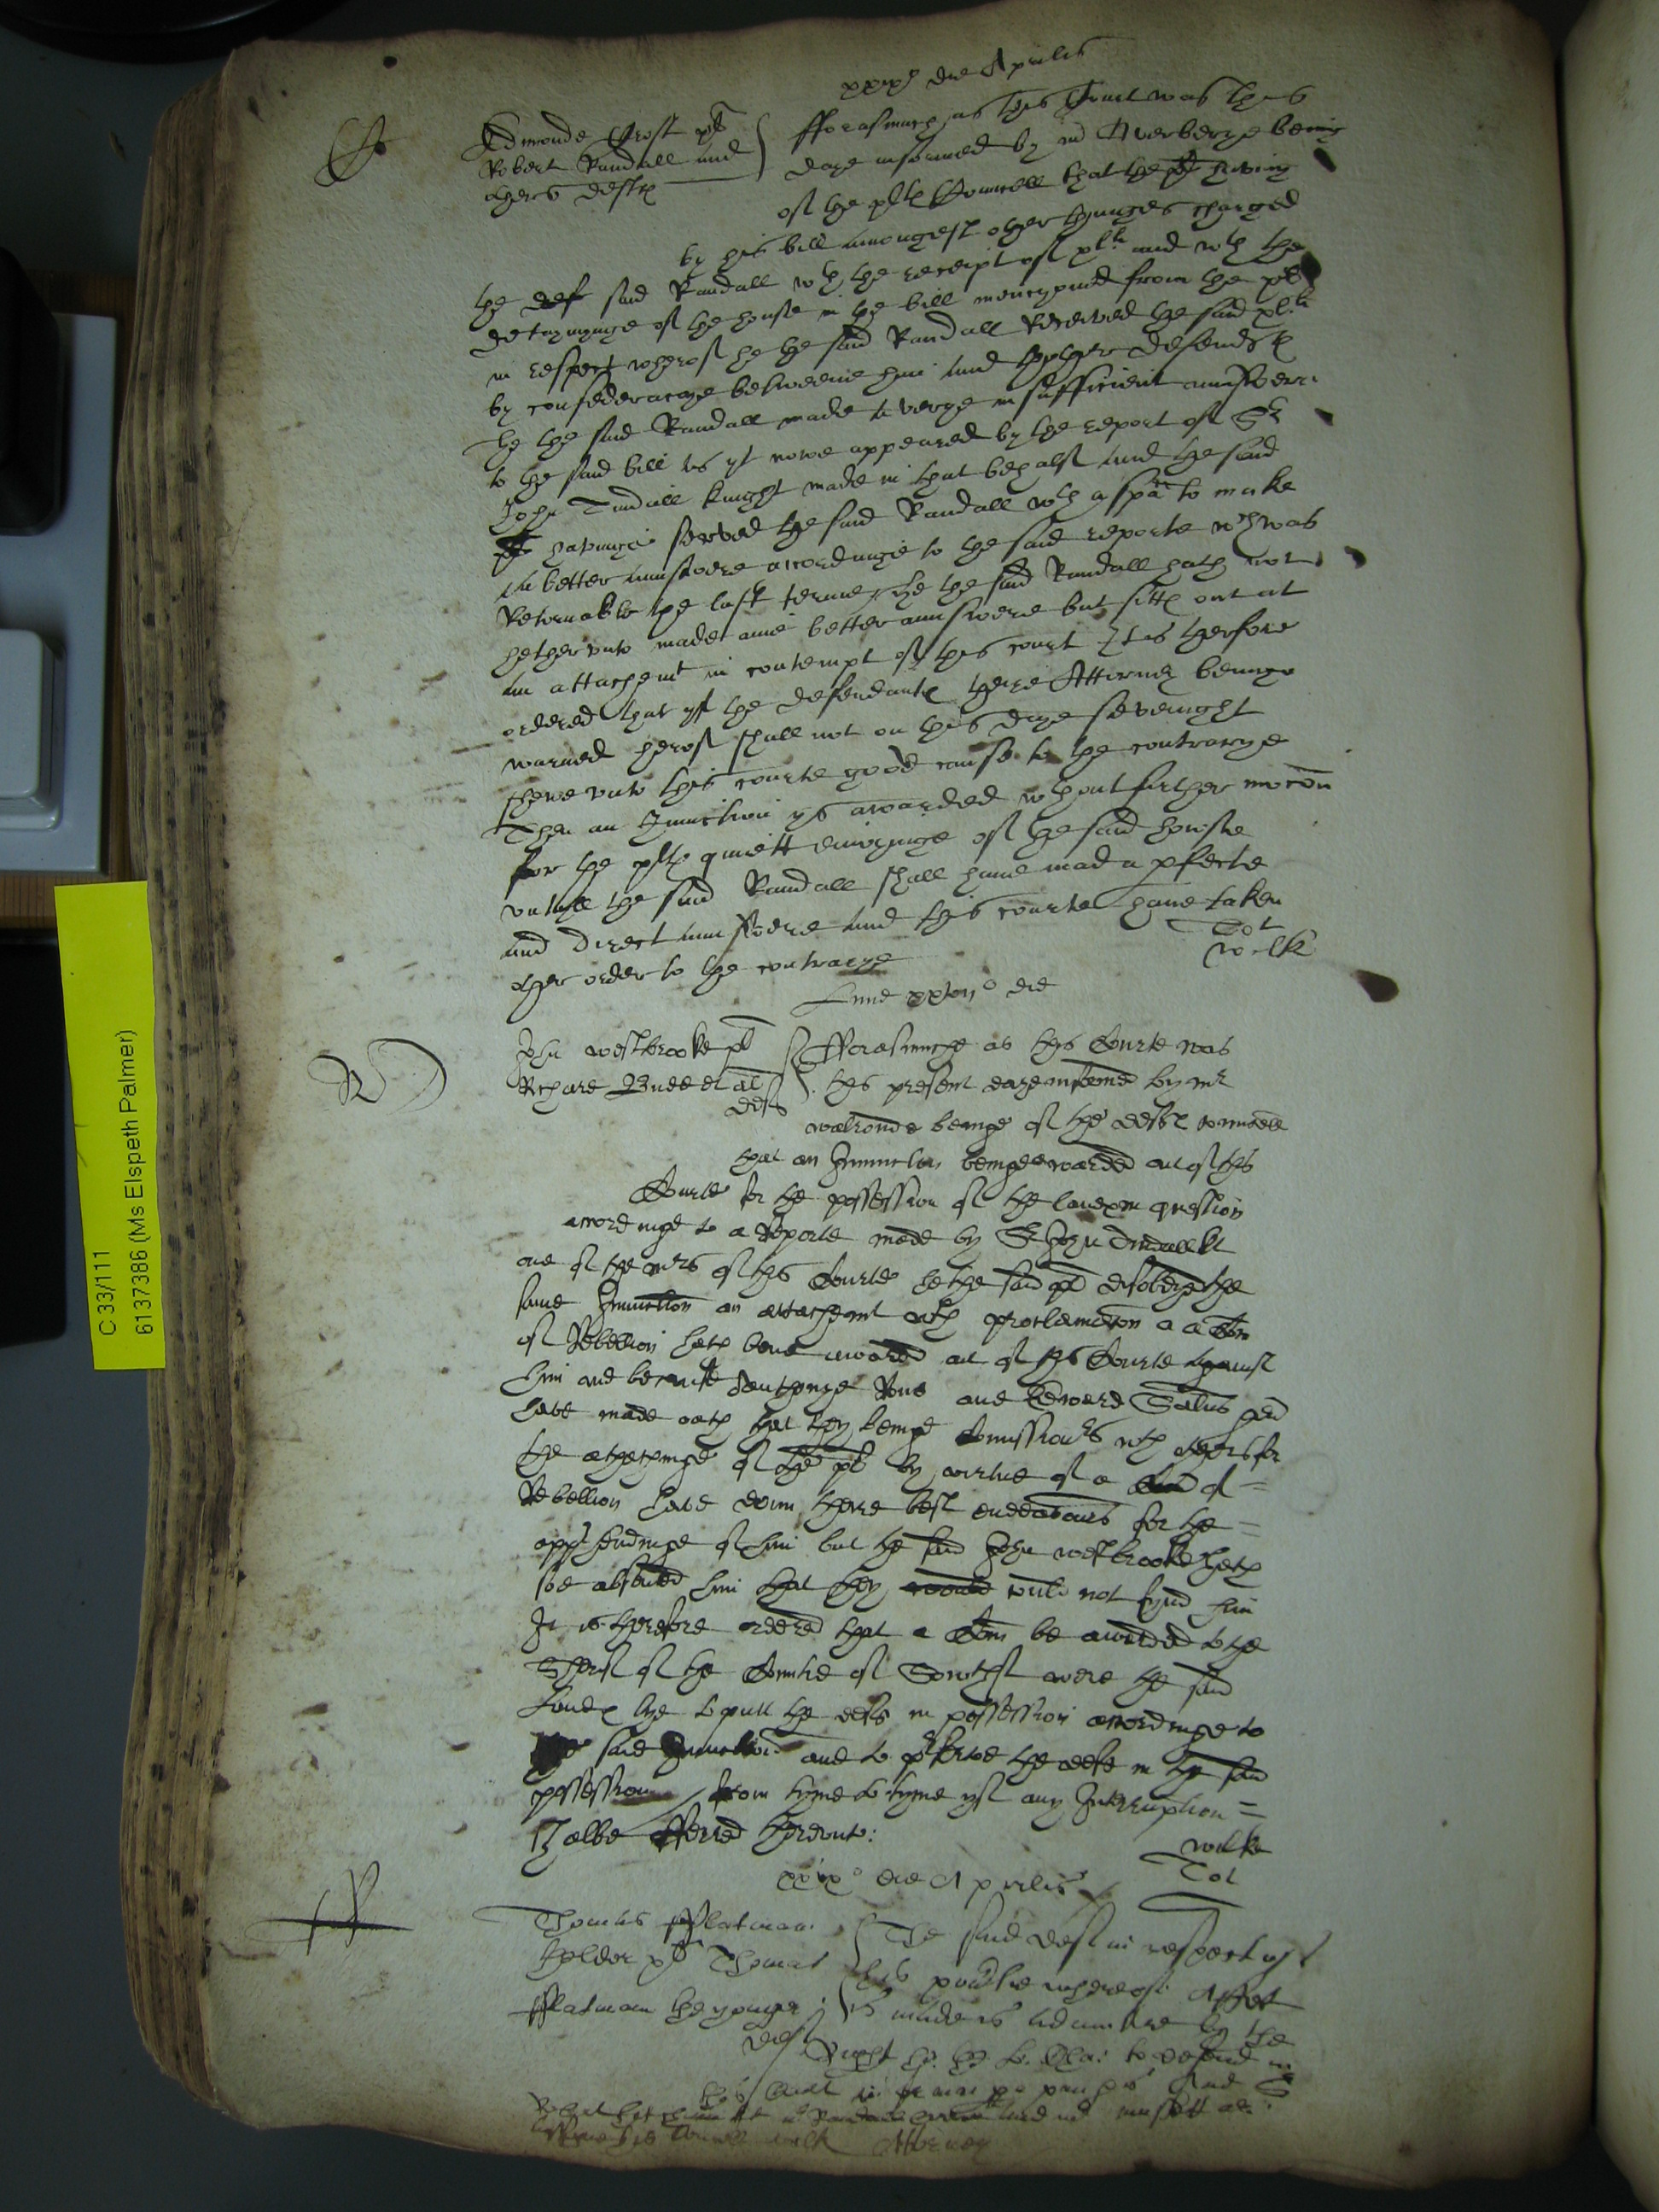 xxix die Aprilis
Edmonde Frost pl
Robert Randall and
others defts
fforasmuch as this Court was this
daye informed by mr Averberye being
of the pltes Councell that the pl having
by his bill amongest other thinges charged
the def said Randall wth the receipt of xl li and wth the
detayninge of the house in the bill mencyoned from the pl
in respect wherof he the said Randall Received the said xl li
by confederacye betweene him and thother defendtes
he the said Randall made a verye insufficient aunswere
to the said bill as yt nowe appeared by the report of Sr
John Tindall knight made in that behalf and the said
pl havinge served the said Randall wth a spa to make
an better aunswere accordinge to the said reporte wch was
Retornable the last terme he the said Randall hath not
hetherunto made anie better aunswere but sitts out at
an attachemt in contempt of this court It is therfore
ordered that yf the defendantes theire Attorney beinge
warned herof shall not on this daye sevenight
shewe unto this courte good cause to the contrarye
Then an Iniunction ys awarded wthout further mocon
for the pltes quiett enioyinge of the said howse
untyll the said Randall shall have mad a pfecte
and direct aunswere and this courte have taken
other order to the contrarye
Tot
wilk
Lune xxviiio die
John westbrooke pl
Richard Budd et al
defts
fforasmuche as this Courte was
this present daye informed by mr
walronde beinge of the deftes counsell
that an Iniunction beinge awarded out of this
Courte for the possession of the landes in question
accordinge to a Reporte made by Sr John Tindall kt
one of the mrs of this Courte he the said pl disobeyed the
same Iniunction an attachemt wth proclamacon a Com
of Rebellion hath bene awarded out of this Courte against
him and because Anthonye and Edward
have made oath that they beinge Comissioners wth others for
the attachinge of the pl by virtue of a Com of
Rebellion have donn there best endeavours for the
apprhendinge of him but the said John westbrooke hath
soe absented him that they would could not fynd him
It is therefore ordered that a Com be awarded to the
Sherif of the Countie of South were the said
landes lye to putt the defts in possession accordinge to
the said Iniunction and to pserve the defts in the said
possession from tyme to tyme yf any Interruption
shalbe offered thereunto:
wilk
Tot
xxixo die Aprilis
Thomas fflatman
thelder pl Thomas
fflatman the yonger
deft
The said deft in respect of
his povertie whereof
is made is admitted by the
Right ho: the L: Cha: to defend in
this Court in forma pauperis And
Attorney
C 33/111
6137386 (Ms Elspeth Palmer)